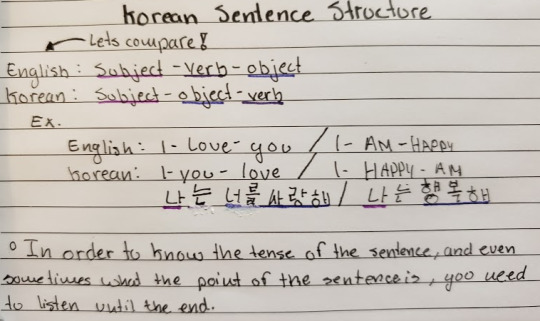 Korean Sentence Structure
Lets compare!
English: Subject-verb-object
Korean: Subject-object-verb
Ex.
English: I-Love-you / I-AM-HAPPY
Korean: I-you-love / I-HAPPY-AM
나는 너를 사랑해 / 나는 행복해
In order to know the tense of the sentence, and even
sometimes what the point of the sentence is, you need
to listen until the end.